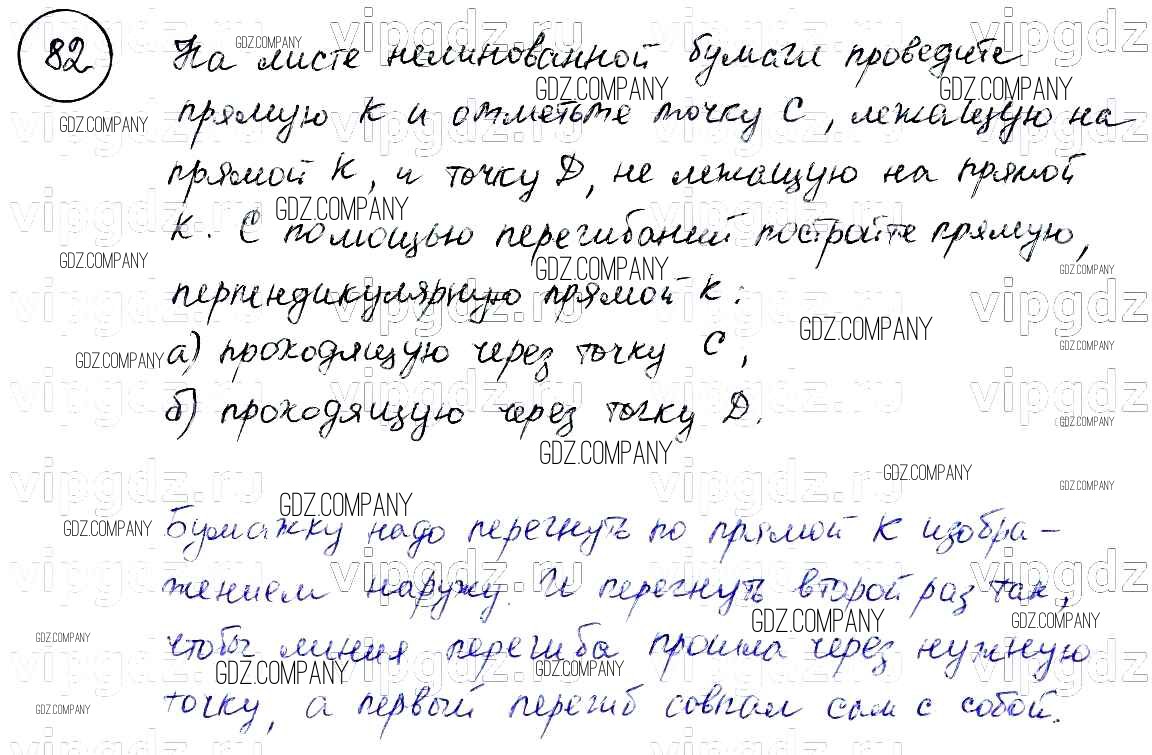 82 На листе нелинованной бумаги проведите
прямую К и отметьте точку С, лежащую на
прямой К, и точку Д, не лежащую на прямой
К. С помощью перегибаний постройте прямую,
перпендикулярную прямой К:
а) проходящую через точку С,
б) проходящую через точку Д.
Бумажку надо перегнуть по прямой К изобра-
жением наружу. И перегнуть второй раз так,
чтобы линия перегиба прошла через нужную
точку, а первый перегиб совпал сам с собой.
vipgdz.ru
GDZ.COMPANY